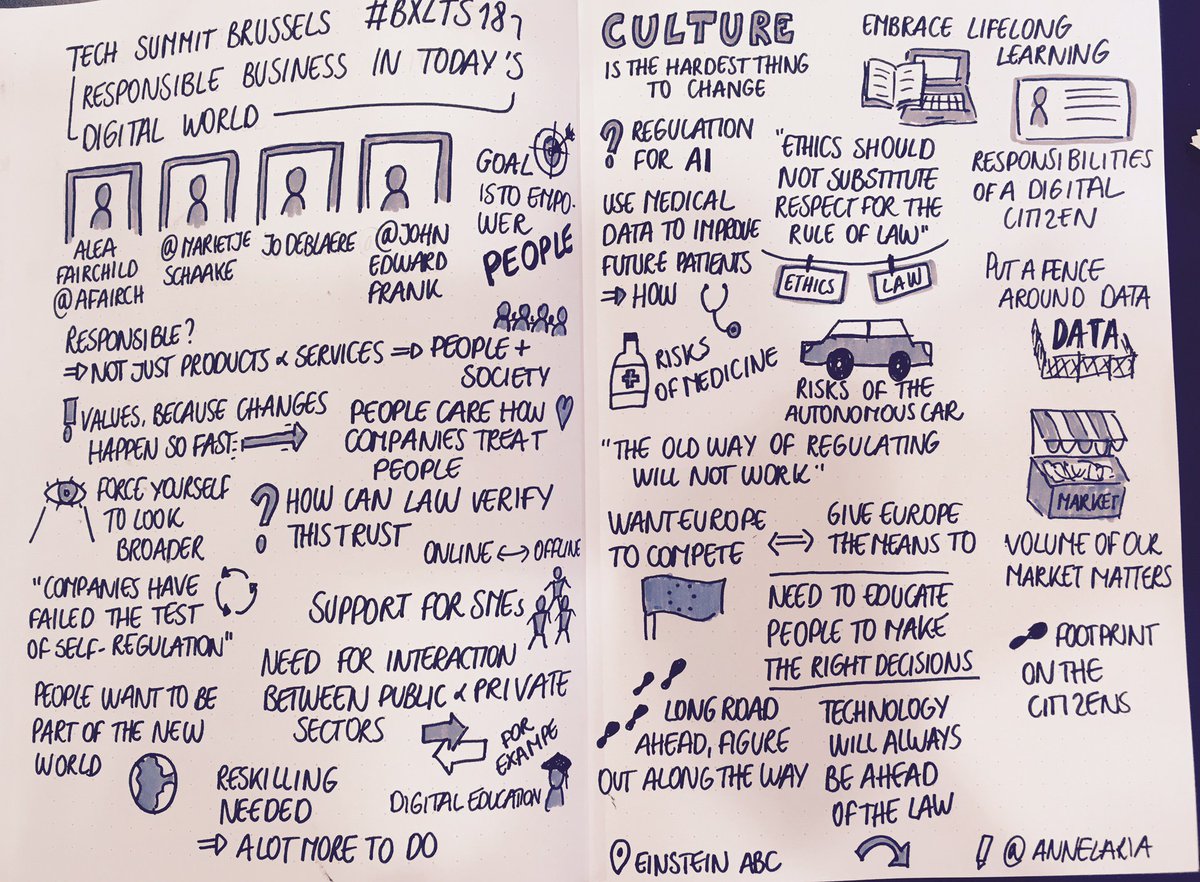 TECH SUMMIT BRUSSELS #BXLTS18
RESPONSIBLE BUSINESS IN TODAY'S
DIGITAL WORLD
ALEA
FAIRCHILD
@AFAIRCH
@MARIETJE
SCHAAKE
JO DEBLAERE
@JOHN
EDWARD
FRANK
GOAL
IS TO EMPO-
WER
PEOPLE
RESPONSIBLE?
⇒ NOT JUST PRODUCTS & SERVICES ⇒ PEOPLE +
SOCIETY
! VALUES, BECAUSE CHANGES
HAPPEN SO FAST
PEOPLE CARE HOW
COMPANIES TREAT
PEOPLE
FORCE YOURSELF
TO LOOK
BROADER
? HOW CAN LAW VERIFY
THIS TRUST
ONLINE ↔ OFFLINE
"COMPANIES HAVE
FAILED THE TEST
OF SELF-REGULATION"
SUPPORT FOR SMEs
NEED FOR INTERACTION
BETWEEN PUBLIC & PRIVATE
SECTORS
PEOPLE WANT TO BE
PART OF THE NEW
WORLD
FOR
EXAMPE
DIGITAL EDUCATION
RESKILLING
NEEDED
⇒ A LOT MORE TO DO
CULTURE
IS THE HARDEST THING
TO CHANGE
EMBRACE LIFELONG
LEARNING
? REGULATION
FOR AI
"ETHICS SHOULD
NOT SUBSTITUTE
RESPECT FOR THE
RULE OF LAW"
ETHICS
LAW
RESPONSIBILITIES
OF A DIGITAL
CITIZEN
USE MEDICAL
DATA TO IMPROVE
FUTURE PATIENTS
⇒ HOW
PUT A FENCE
AROUND DATA
DATA
RISKS
OF MEDICINE
RISKS OF THE
AUTONOMOUS CAR
"THE OLD WAY OF REGULATING
WILL NOT WORK"
MARKET
VOLUME OF OUR
MARKET MATTERS
WANT EUROPE
TO COMPETE
⇔ GIVE EUROPE
THE MEANS TO
NEED TO EDUCATE
PEOPLE TO MAKE
THE RIGHT DECISIONS
FOOTPRINT
ON THE
CITIZENS
LONG ROAD
AHEAD, FIGURE
OUT ALONG THE WAY
TECHNOLOGY
WILL ALWAYS
BE AHEAD
OF THE LAW
EINSTEIN ABC
@ANNELARIA